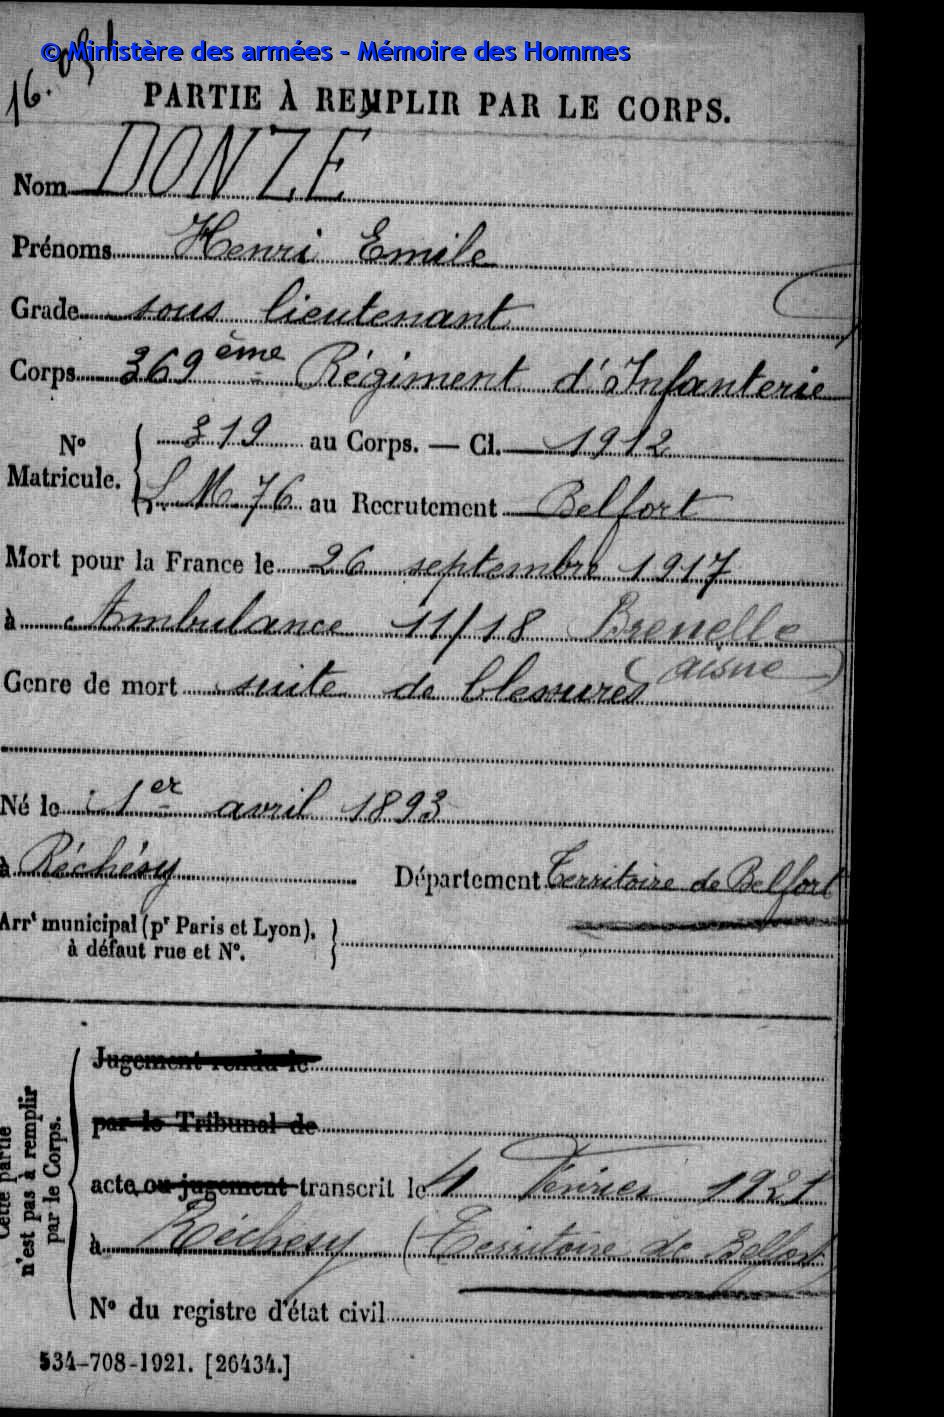 © Ministère des armées - Mémoire des Hommes
16.
PARTIE À REMPLIR PAR LE CORPS.
Nom DONZÉ
Prénoms Henri Emile
Grade sous lieutenant
Corps 369ème Régiment d'Infanterie
N° Matricule. 319 au Corps. — Cl. 1912
L.M. 76 au Recrutement Belfort
Mort pour la France le 26 septembre 1917
à Ambulance 11/18 Brenelle
(aisne)
Genre de mort suite de blessures
Né le 1er avril 1893
à Réchésy Département Territoire de Belfort
Arrt municipal (pr Paris et Lyon),
à défaut rue et N°.
Cette partie
n'est pas à remplir
par le Corps.
Jugement rendu le
par le Tribunal de
acte ou jugement transcrit le 4 Février 1921
à Réchésy (Territoire de Belfort)
N° du registre d'état civil
534-708-1921. [26434.]